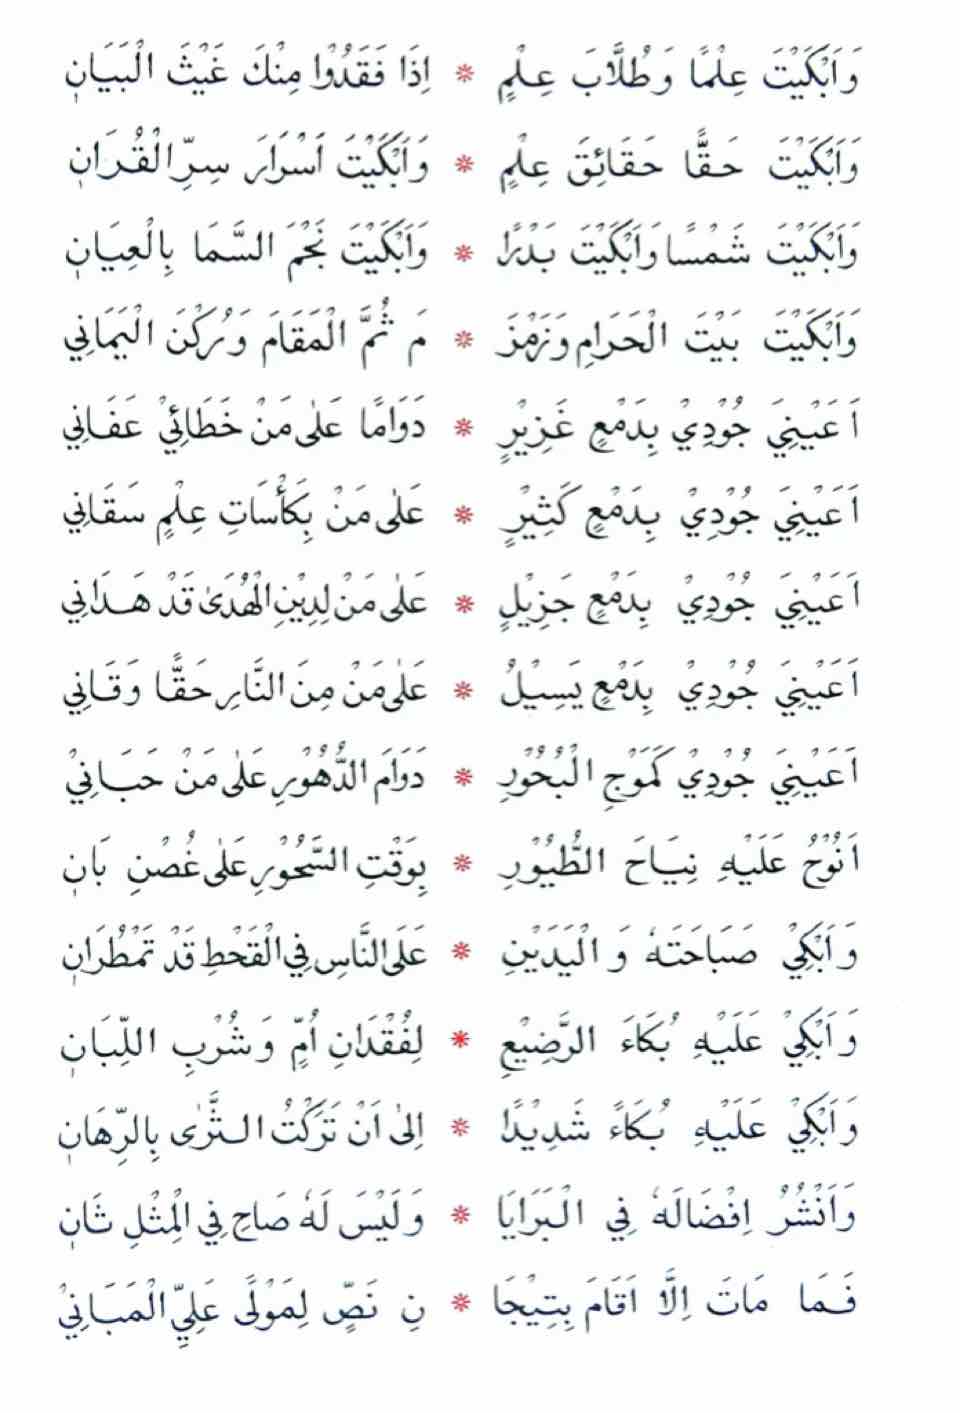 وَاَبْكَيْتَ عِلْمًا وَطُلَّابَ عِلْمٍ * اِذَا فَقَدُوْا مِنْكَ غَيْثَ الْبَيَانِ
وَاَبْكَيْتَ حَقًّا حَقَائِقَ عِلْمٍ * وَاَبْكَيْتَ اَسْرَارَ سِرِّ الْقُرَانِ
وَاَبْكَيْتَ شَمْسًا وَاَبْكَيْتَ بَدْرًا * وَاَبْكَيْتَ نَجْمَ السَّمَا بِالْعِيَانِ
وَاَبْكَيْتَ بَيْتَ الْحَرَامِ وَزَمْزَ * مَ ثُمَّ الْمَقَامَ وَرُكْنَ الْيَمَانِي
اَعَيْنِيَ جُوْدِيْ بِدَمْعٍ غَزِيْرٍ * دَوَامًا عَلٰى مَنْ خَطَائِيْ عَفَانِي
اَعَيْنِيَ جُوْدِيْ بِدَمْعٍ كَثِيْرٍ * عَلٰى مَنْ بِكَأْسَاتِ عِلْمٍ سَقَانِي
اَعَيْنِيَ جُوْدِيْ بِدَمْعٍ جَزِيْلٍ * عَلٰى مَنْ لِدِيْنِ الْهُدَىٰ قَدْ هَدَانِي
اَعَيْنِيَ جُوْدِيْ بِدَمْعٍ يَسِيْلُ * عَلٰى مَنْ مِنَ النَّارِ حَقًّا وَقَانِي
اَعَيْنِيَ جُوْدِيْ كَمَوْجِ الْبُحُوْرِ * دَوَامَ الدُّهُوْرِ عَلٰى مَنْ حَبَانِيْ
اَنُوْحُ عَلَيْهِ نِيَاحَ الطُّيُوْرِ * بِوَقْتِ السَّحُوْرِ عَلٰى غُصْنِ بَانِ
وَاَبْكِيْ صَبَاحَتَهٗ وَ الْيَدَيْنِ * عَلَى النَّاسِ فِي الْقَحْطِ قَدْ تَمْطُرَانِ
وَاَبْكِيْ عَلَيْهِ بُكَاءَ الرَّضِيْعِ * لِفُقْدَانِ اُمٍّ وَشُرْبِ اللِّبَانِ
وَاَبْكِيْ عَلَيْهِ بُكَاءً شَدِيْدًا * اِلٰى اَنْ تَرَكْتُ الثَّرٰى بِالرِّهَانِ
وَاَنْشُرُ اِفْضَالَهٗ فِي الْبَرَايَا * وَلَيْسَ لَهٗ صَاحِ فِي الْمِثْلِ ثَانِ
فَمَا مَاتَ اِلَّا اَقَامَ بِتِيْجَا * نِ نَصٍّ لِمَوْلًى عَلِيِّ الْمَبَانِيْ